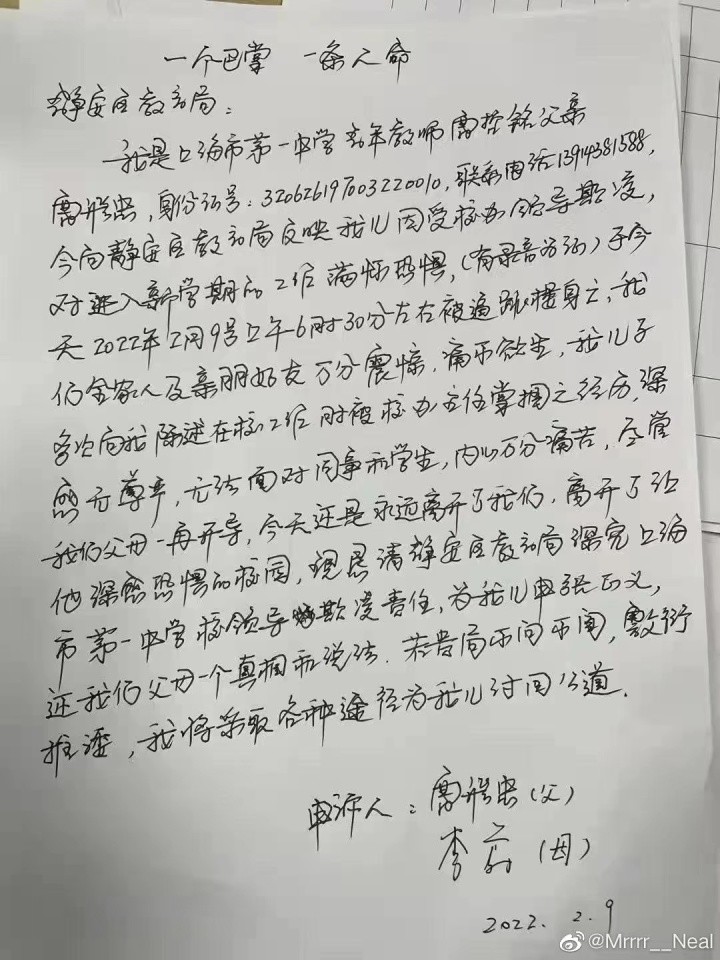 一个巴掌 一条人命
静安区教育局:
我是上海市第一中学青年教师 父亲
,身份证号: ,联系电话 ,
今向静安区教育局反映我儿因受校办领导欺凌,
对进入新学期的工作满怀恐惧,(有录音为证)于今
天2022年2月9号上午6时30分左右被逼跳楼身亡,我
们全家人及亲朋好友万分震惊,痛不欲生,我儿子
多次向我陈述在校工作时被校办主任掌掴之经历,深
感无尊严,无法面对同事和学生,内心万分痛苦,尽管
我们父母一再开导,今天还是永远离开了我们,离开了让
他深感恐惧的校园,现恳请静安区教育局深究上海
市第一中学校领导欺凌责任,为我儿申张正义,
还我们父母一个真相和说法.若贵局不问不闻,敷衍
推诿,我将采取各种途径为我儿讨回公道.
申诉人: (父)
李 (母)
2022.2.9
@Mrrrr__Neal